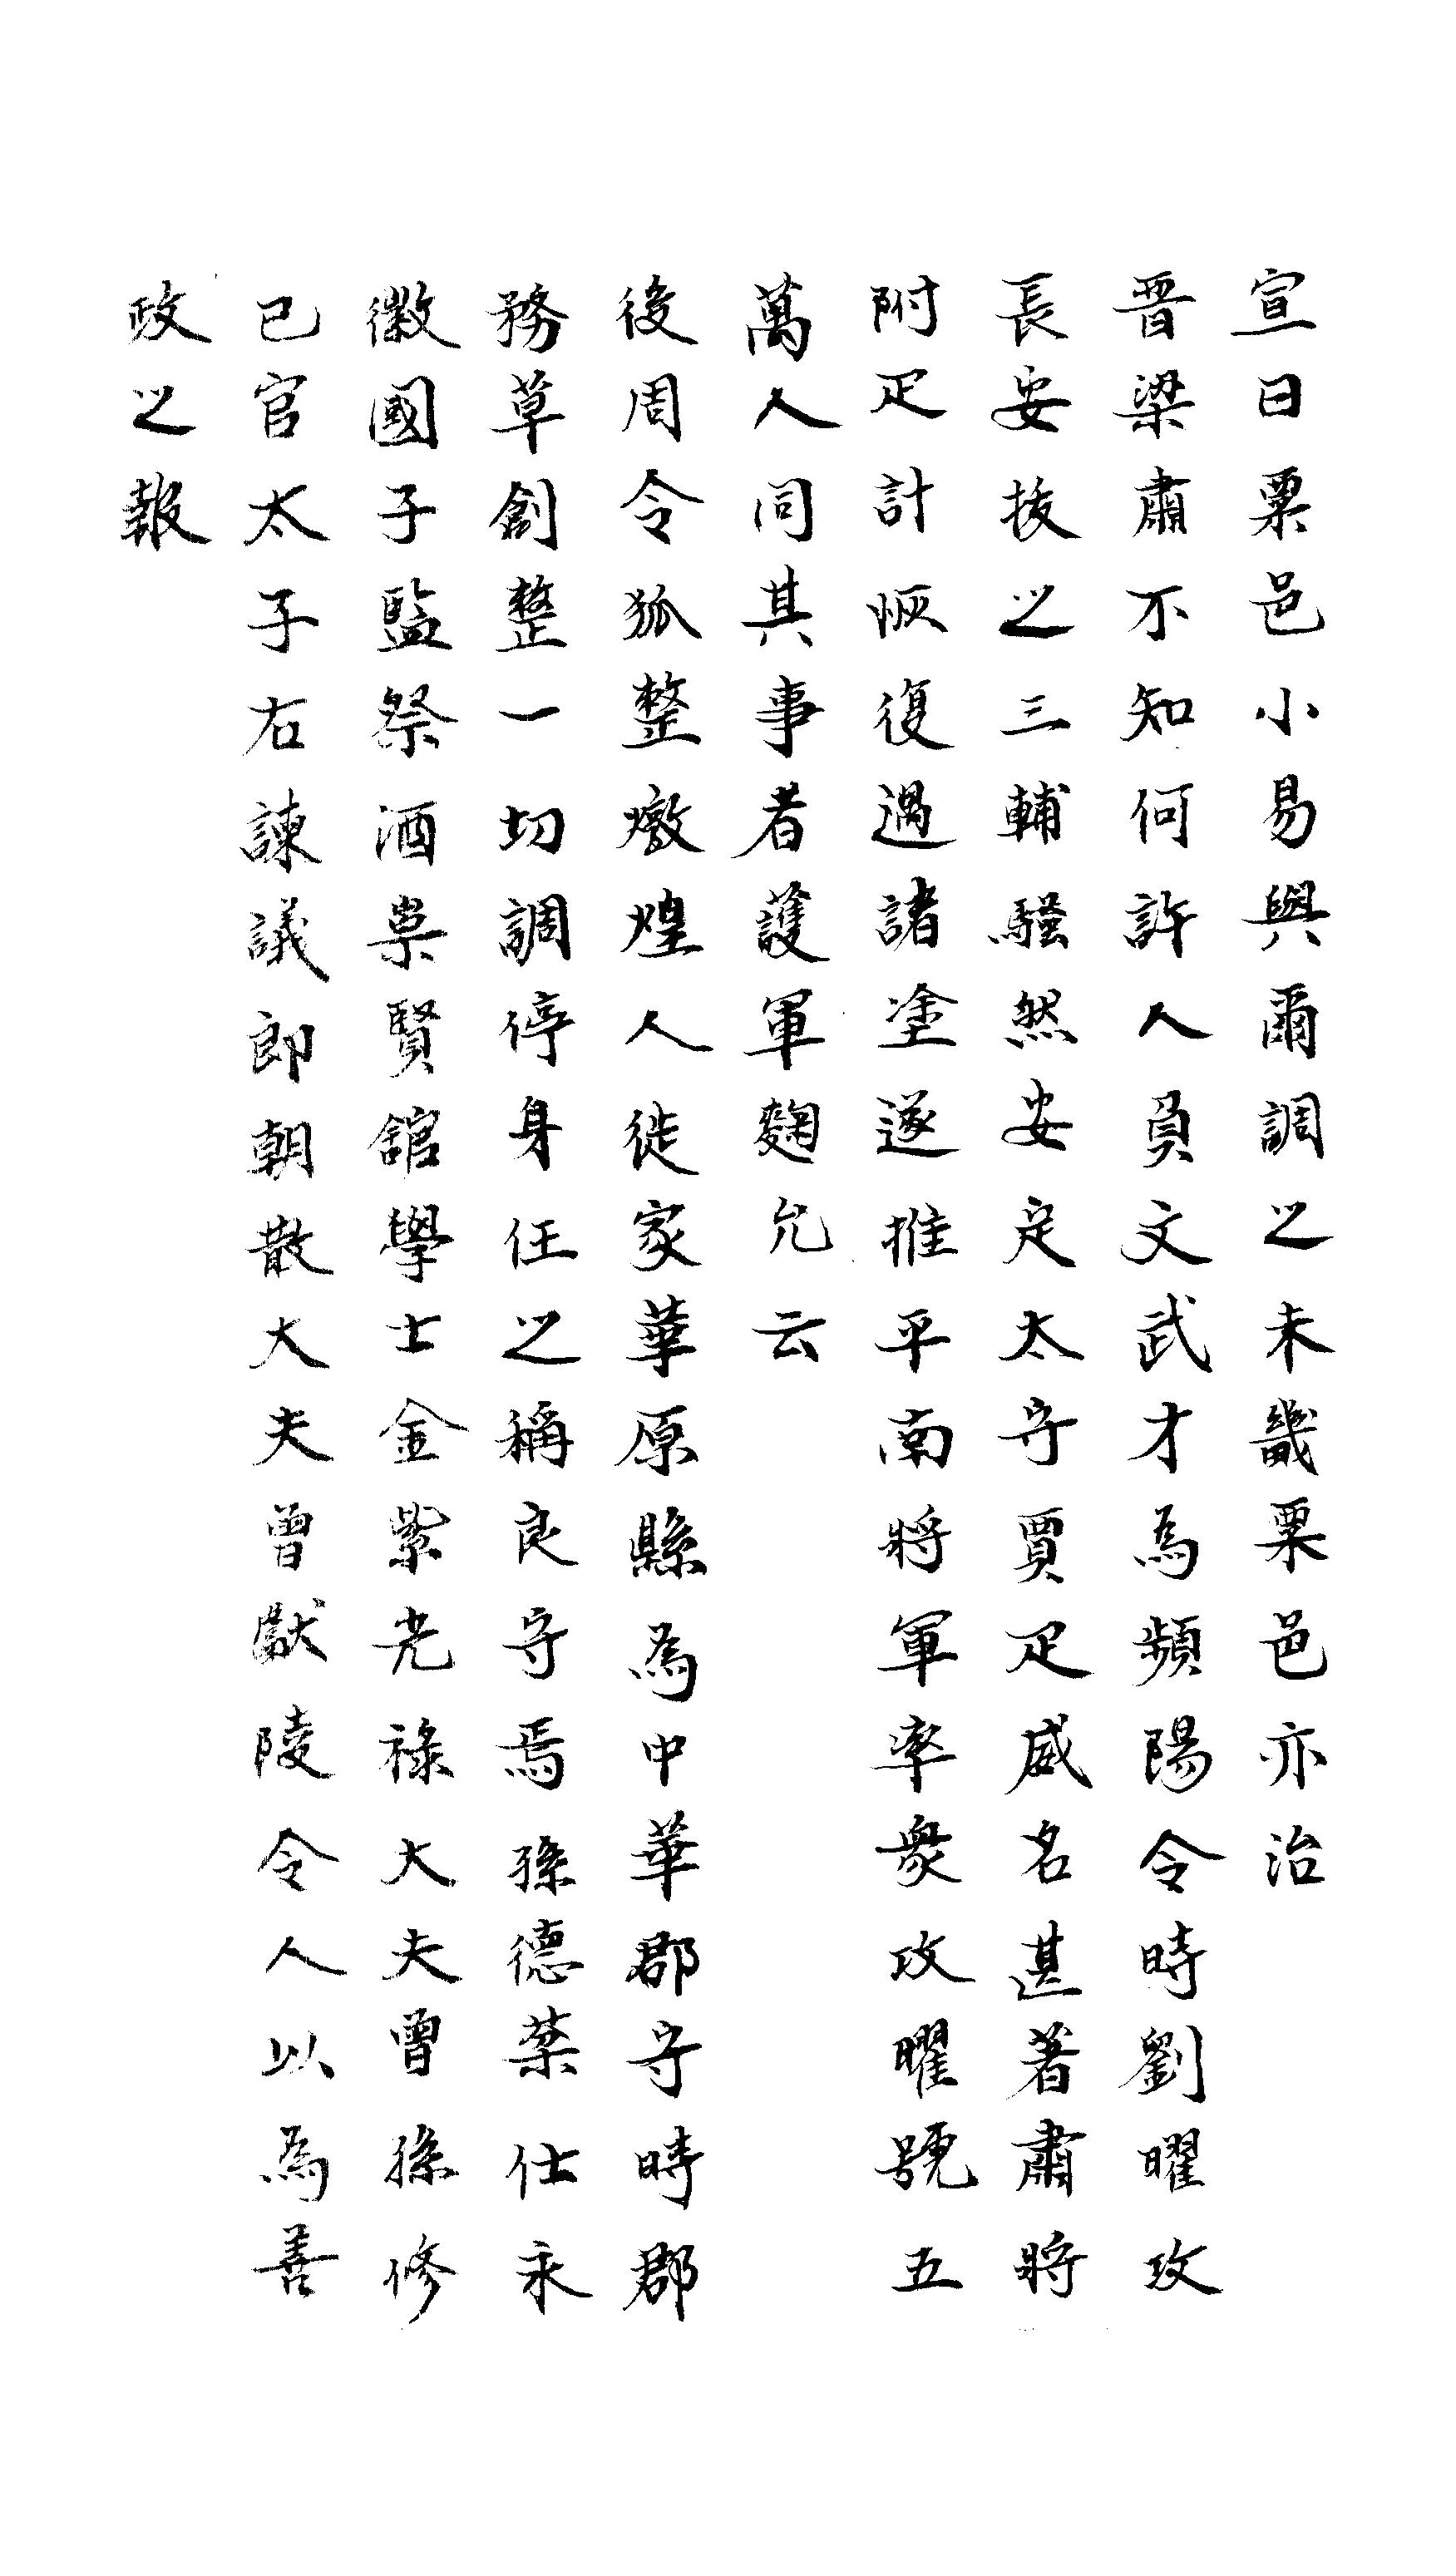 宣曰粟邑小易與爾調之未畿粟邑亦治
晋梁肅不知何許人負文武才為頻陽令時劉曜攻
長安拔之三輔騷然安定太守賈疋威名甚著肅將
附疋計恢復遇諸塗遂推平南將軍率衆攻曜號五
萬人同其事者護軍麴允云
後周令狐整燉煌人徙家華原縣為中華郡守時郡
務草創整一切調停身任之稱良守焉孫德棻仕永
徽國子監祭酒崇賢舘學士金紫光祿大夫曾孫修
已官太子右諫議郎朝散大夫曾獻陵令人以為善
政之報